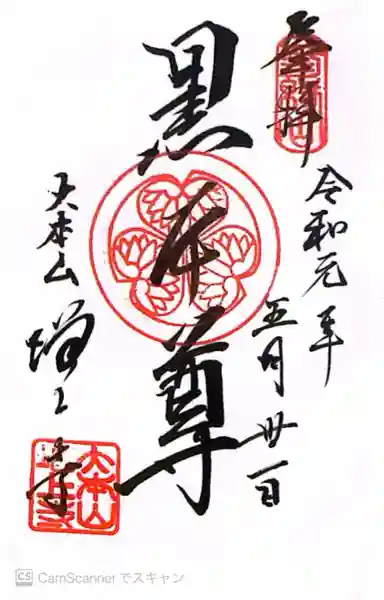 奉拝
令和元年
五月廿一日
黒本尊
大本山
増上寺
大本山
CS CamScanner でスキャン